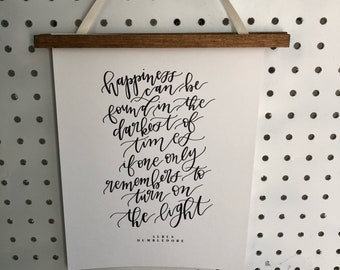 happiness
can be
found in the
darkest of
times
if one only
remembers to
turn on
the light
ALBUS
DUMBLEDORE